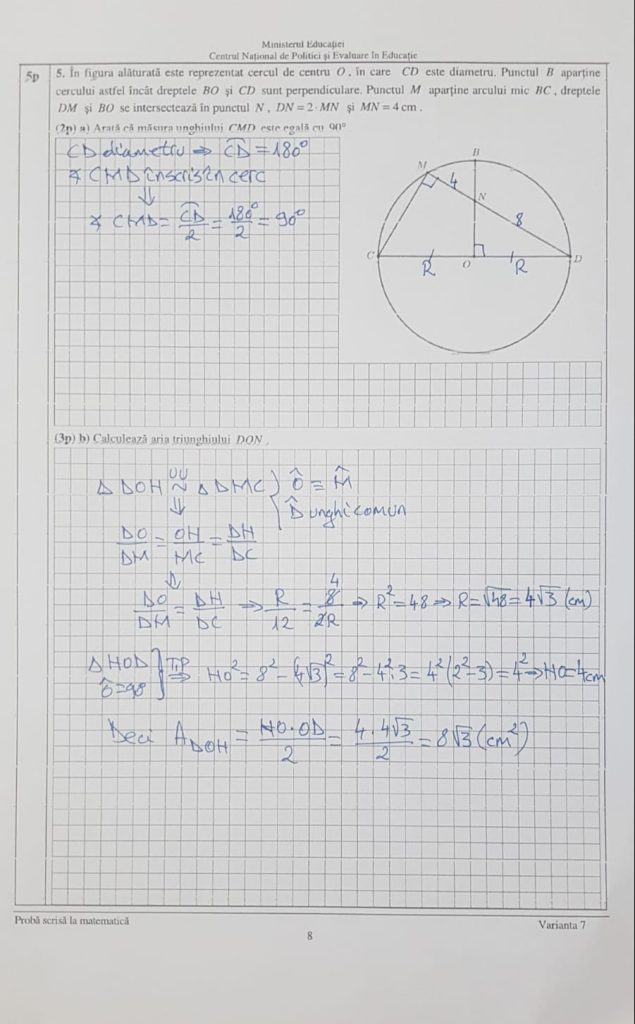 Ministerul Educației
Centrul Național de Politici și Evaluare în Educație
5p
5. În figura alăturată este reprezentat cercul de centru O, în care CD este diametru. Punctul B aparține
cercului astfel încât dreptele BO și CD sunt perpendiculare. Punctul M aparține arcului mic BC, dreptele
DM și BO se intersectează în punctul N, DN = 2·MN și MN = 4 cm.
(2p) a) Arată că măsura unghiului CMD este egală cu 90°
CD diametru ⇒ CD = 180°
∢ CMD înscris în cerc
⇓
∢ CMD = CD/2 = 180°/2 = 90°
B
M
4
N
8
C
R
O
R
D
(3p) b) Calculează aria triunghiului DON.
Δ DON ~ (UU) Δ DMC } Ô ≡ M̂
D̂ unghi comun
⇓
DO/DM = ON/MC = DN/DC
⇓
DO/DM = DN/DC ⇒ R/12 = 8/2R 4 ⇒ R² = 48 ⇒ R = √48 = 4√3 (cm)
Δ NOD } TP ⇒ NO² = 8² - (4√3)² = 8² - 4²·3 = 4²(2²-3) = 4² ⇒ NO = 4cm
Ô = 90
Deci A DON = NO·OD/2 = 4·4√3/2 = 8√3 (cm²)
Probă scrisă la matematică
Varianta 7
8